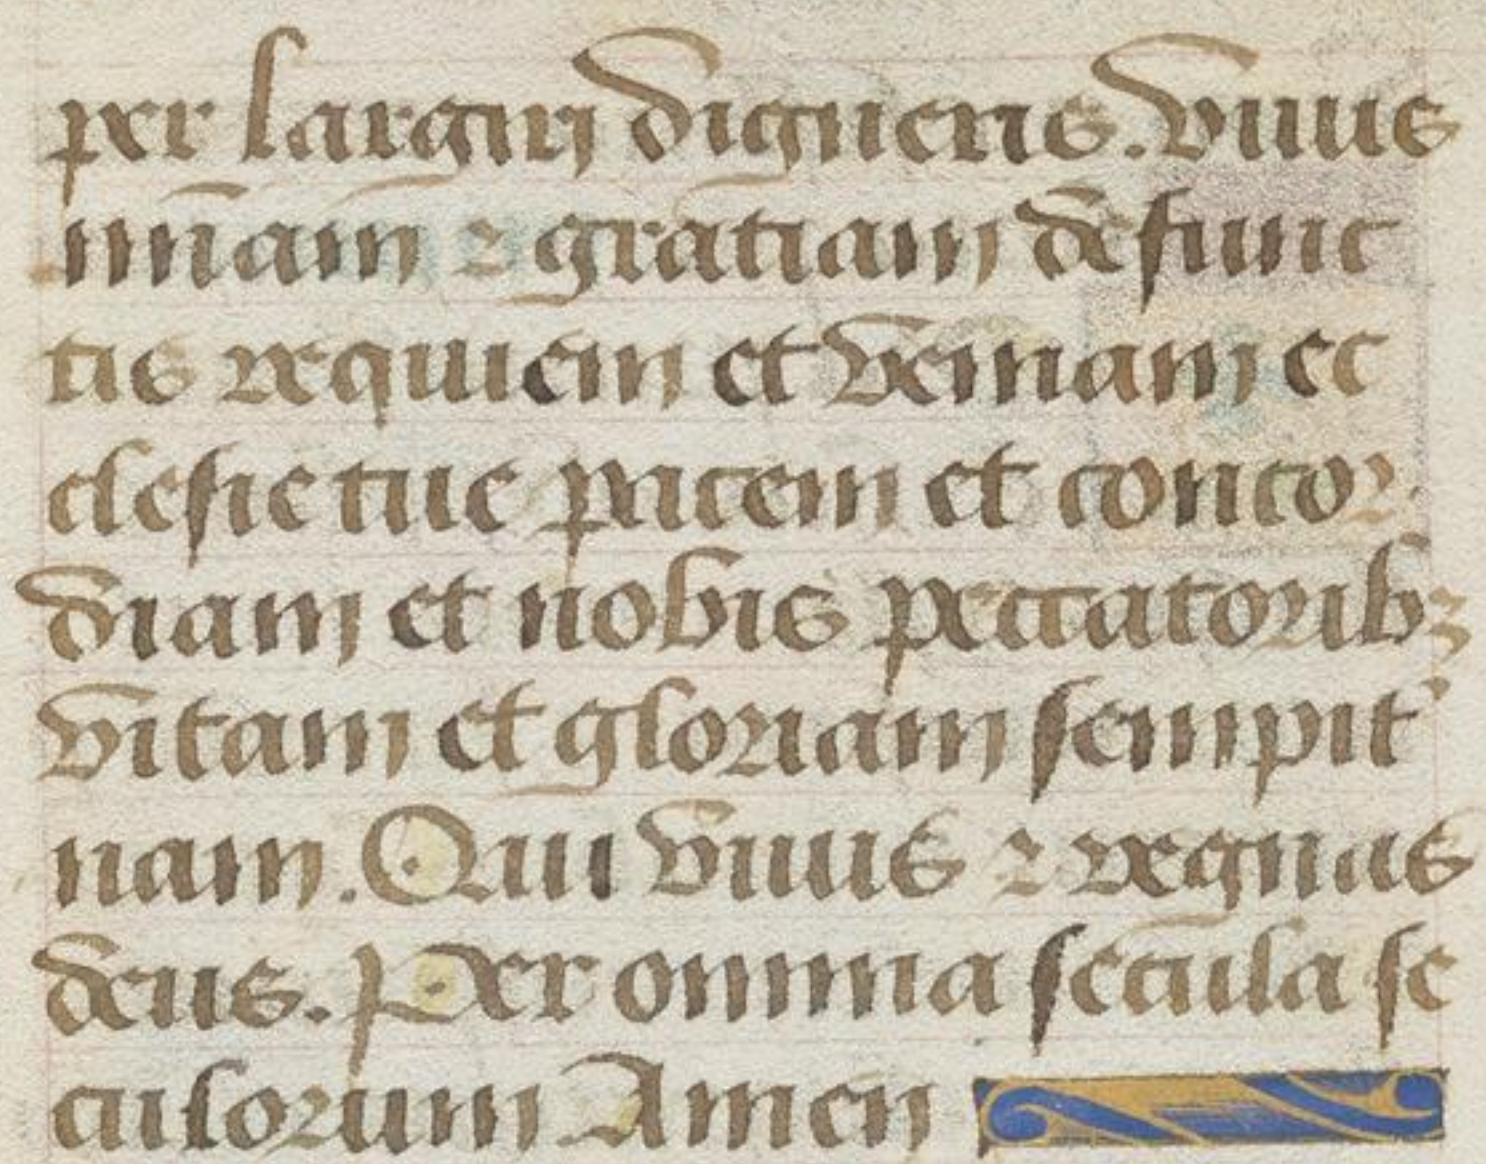 per largiri digneris. Viuis
mīam ⁊ gratiam defunc
tis requiem et veniam ec
clesie tue pacem et concor
diam et nobis peccatorib⁊
vitam et gloriam sempit'
nam. Qui viuis ⁊ regnas
deus. Per omnia secula se
culorum Amen